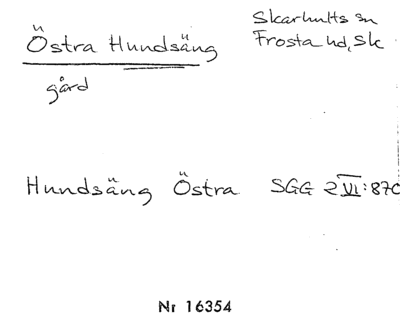 Östra Hundsäng
Skarhults sn
Frosta hd, Sk
gård
Hundsäng Östra SGG 2 VI:870
Nr 16354